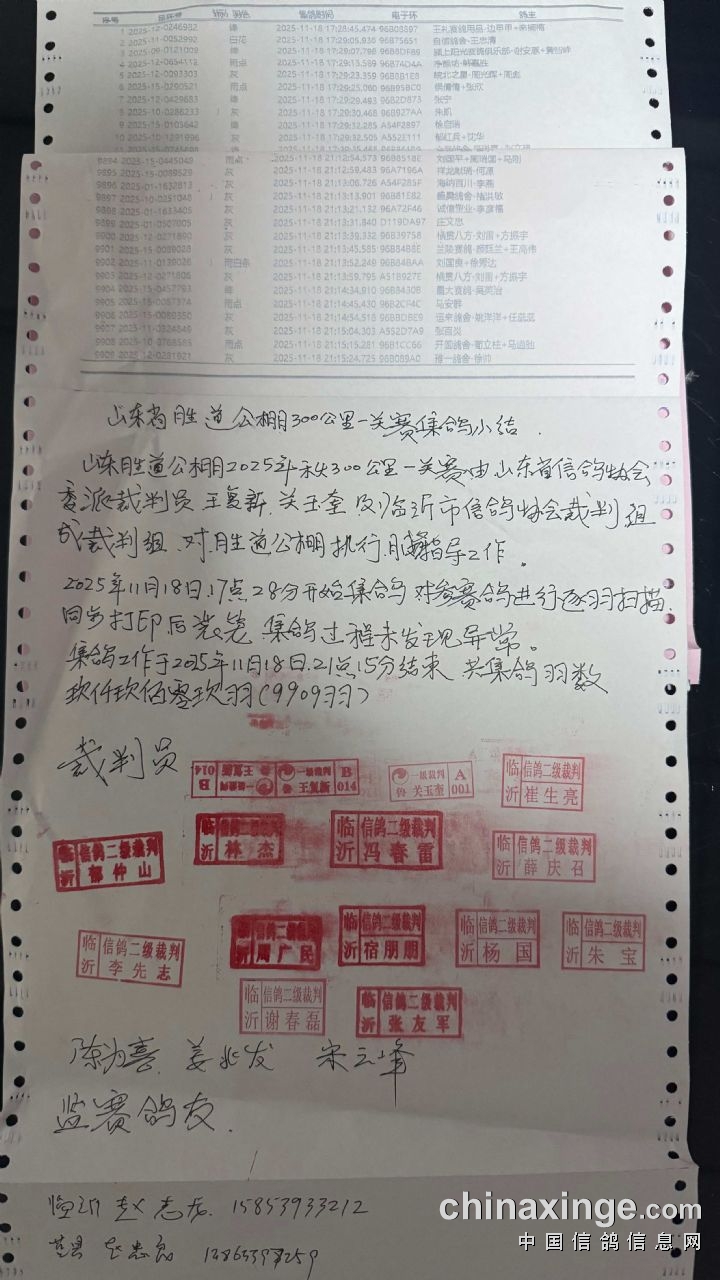 序号 足环号 性别 羽色 集鸽时间 电子环 鸽主
1 2025-12-0246982 绛 2025-11-18 17:28:45.474 96B08897
2 2025-11-0052992 白花 2025-11-18 17:29:05.936 自信鸽舍-王忠清
3 2025-09-0121009 绛 2025-11-18 17:29:07.796 96B8DF89
4 2025-12-0654112 雨点 2025-11-18 17:29:13.589 96B74D4A
5 2025-12-0093303 灰 2025-11-18 17:29:23.359 96B881E8 皖北之星-周光辉+周彪
6 2025-15-0290521 雨点 2025-11-18 17:29:25.060 96B95BC0
7 2025-12-0429683 绛 2025-11-18 17:29:29.493 96B2D873 张宁
8 2025-10-0286233 灰 2025-11-18 17:29:30.468 96B927AA 朱凯
9 2025-15-0103642 绛 2025-11-18 17:29:32.285 A54F2897
10 灰 2025-11-18 17:29:32.505 A552E111 郁红兵+沈华
9894 2025-15-0445049 雨点 2025-11-18 21:12:54.573 96B8518E
9895 2025-15-0089529 灰 2025-11-18 21:12:59.483 96A7196A
9896 2025-01-1632813 灰 2025-11-18 21:13:06.726 A54F285F 海纳百川-李燕
9897 2025-10-0251048 灰 2025-11-18 21:13:13.901 96B81E82
9898 2025-01-1633405 灰 2025-11-18 21:13:21.132 96A72F46 诚信物业-李彦福
9899 2025-01-0507005 灰 2025-11-18 21:13:31.840 D119DA97 庄文忠
9900 2025-12-0271800 灰 2025-11-18 21:13:39.332 96B39758 横贯八方-刘雷+方振宇
9901 2025-15-0089028 灰 2025-11-18 21:13:45.565 96B84B8E 兰陵赛鸽-颜巨兰+王高伟
9902 2025-11-0139026 雨白条 2025-11-18 21:13:52.249 96B84BAA 刘国良+徐秀达
9903 2025-12-0271806 灰 2025-11-18 21:13:59.795 A51B927E 横贯八方-刘雷+方振宇
9904 2025-15-0457793 绛 2025-11-18 21:14:34.910 96B8430B
9905 2025-15-0087374 雨点 2025-11-18 21:14:45.430 96B2CF4C 马安群
9906 2025-15-0089350 灰 2025-11-18 21:14:54.518 96BBDBE9
9907 2025-11-0324849 灰 2025-11-18 21:15:04.303 A552D7A9 张百炎
9908 2025-10-0768585 雨点 2025-11-18 21:15:15.281 96B1CC66
9909 2025-12-0281921 灰 2025-11-18 21:15:24.725 96B089A0 雅一鸽舍-徐帅
山东省胜道公棚300公里一关赛集鸽小结.
山东胜道公棚2025年秋300公里一关赛由山东省信鸽协会
委派裁判员王复新.关玉奎及临沂市信鸽协会裁判组
成裁判组.对胜道公棚执行监督指导工作。
2025年11月18日.17点28分开始集鸽对参赛鸽进行逐羽扫描.
同步打印后装笼.集鸽过程未发现异常。
集鸽工作于2025年11月18日.21点15分结束 共集鸽羽数
玖仟玖佰零玖羽(9909羽)
裁判员
B 014 一级裁判 鲁 王复新 一级裁判 鲁 王复新 B 014
一级裁判 鲁 关玉奎 A 001
临沂 信鸽二级裁判 崔生亮
临沂 信鸽二级裁判 郁仲山
临沂 信鸽二级裁判 林杰
临沂 信鸽二级裁判 冯春雷
临沂 信鸽二级裁判 薛庆召
临沂 信鸽二级裁判 李先志
临沂 信鸽二级裁判 周广民
临沂 信鸽二级裁判 宿朋朋
临沂 信鸽二级裁判 杨国
临沂 信鸽二级裁判 朱宝
临沂 信鸽二级裁判 谢春磊
临沂 信鸽二级裁判 张友军
陈为喜. 姜兆发 宋云峰
监赛鸽友.
临沂 赵志龙. 15853933212
莒县
chinaxinge.com
中国信鸽信息网